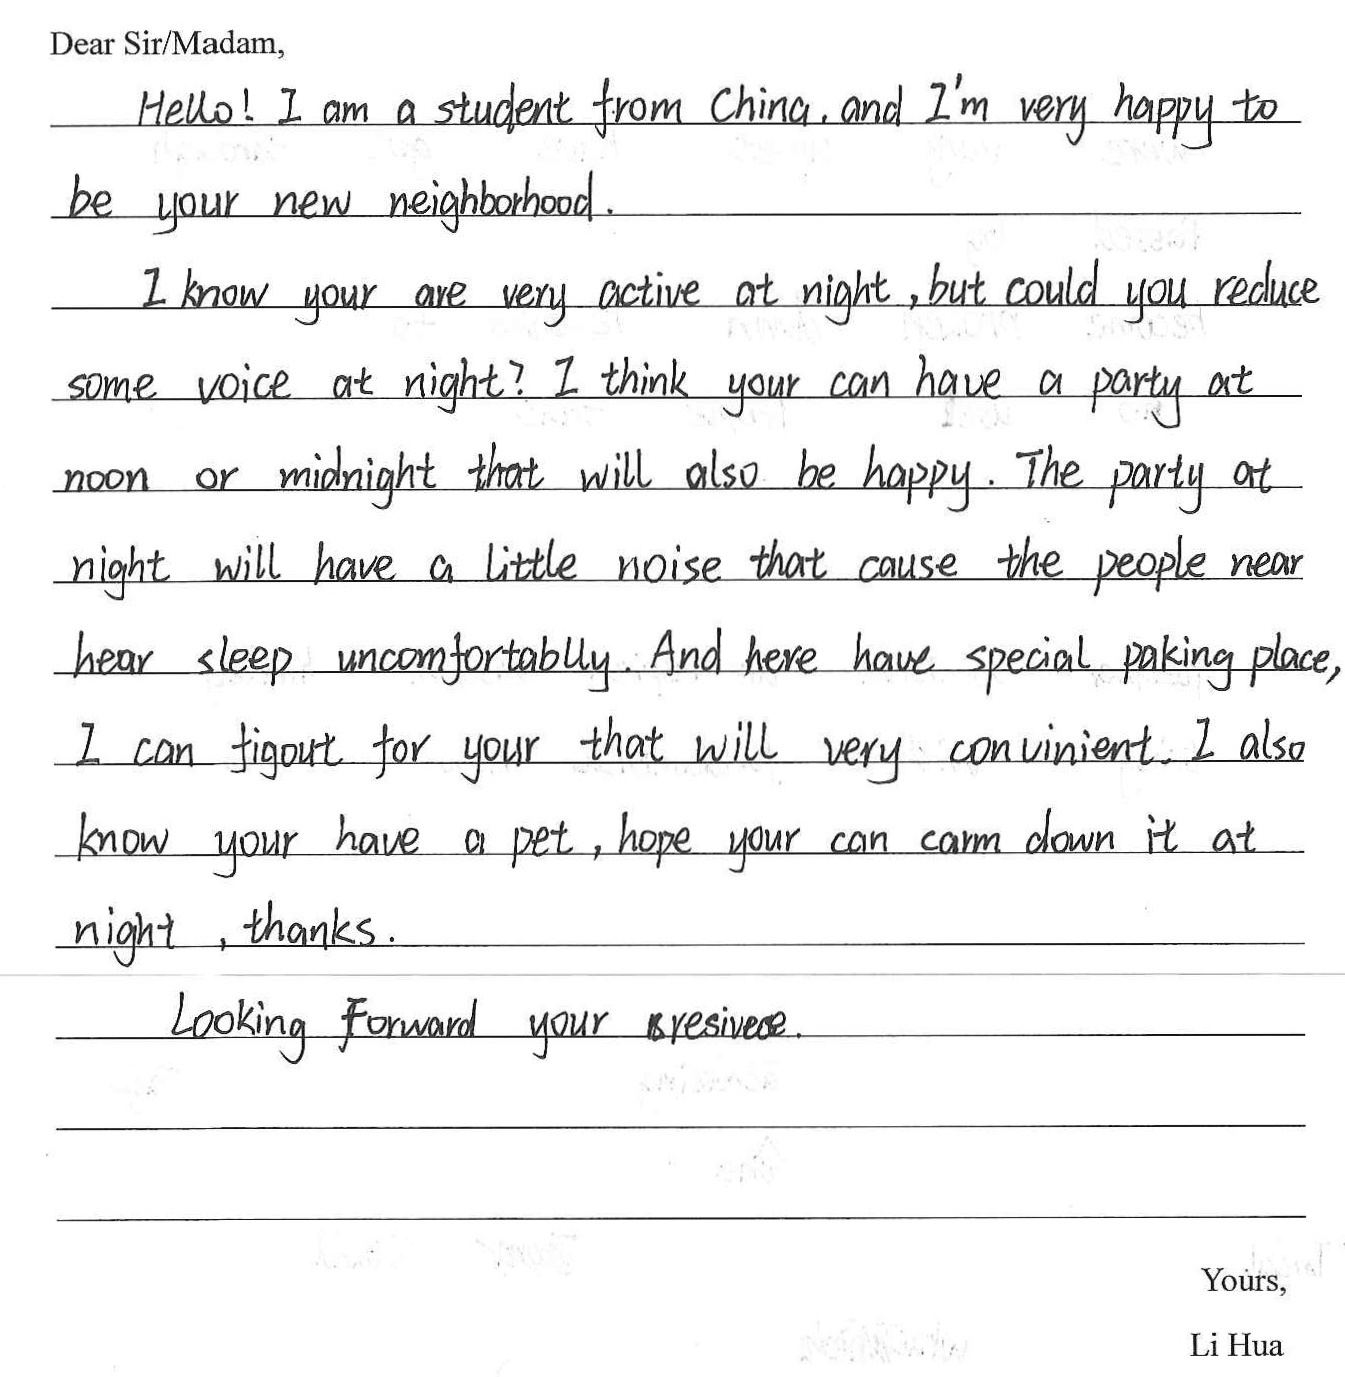 Dear Sir/Madam,
Hello! I am a student from China, and I'm very happy to
be your new neighborhood.
I know your are very active at night, but could you reduce
some voice at night? I think your can have a party at
noon or midnight that will also be happy. The party at
night will have a little noise that cause the people near
hear sleep uncomfortablly. And here have special paking place,
I can figout for your that will very convinient. I also
know your have a pet, hope your can carm down it at
night, thanks.
Looking Forward your
Yours,
Li Hua